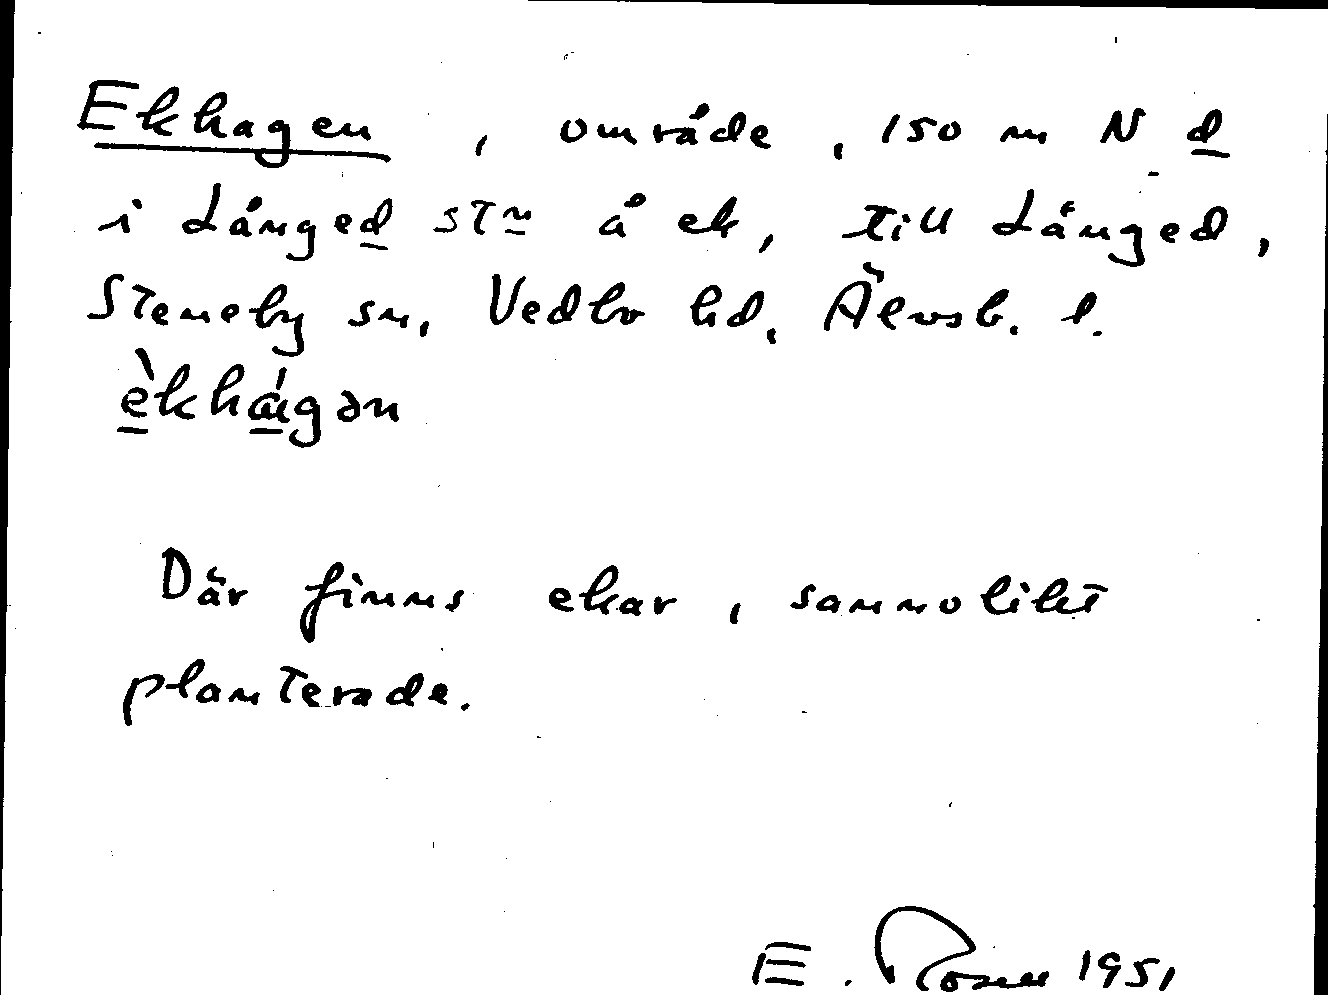 Ekhagen, område, 150 m N d
i Långed stn å ek, till Långed,
Steneby sn, Vedbo hd, Älvsb. l.
èkhágən
Där finns ekar, sannolikt
planterade.
E. Rosell 1951